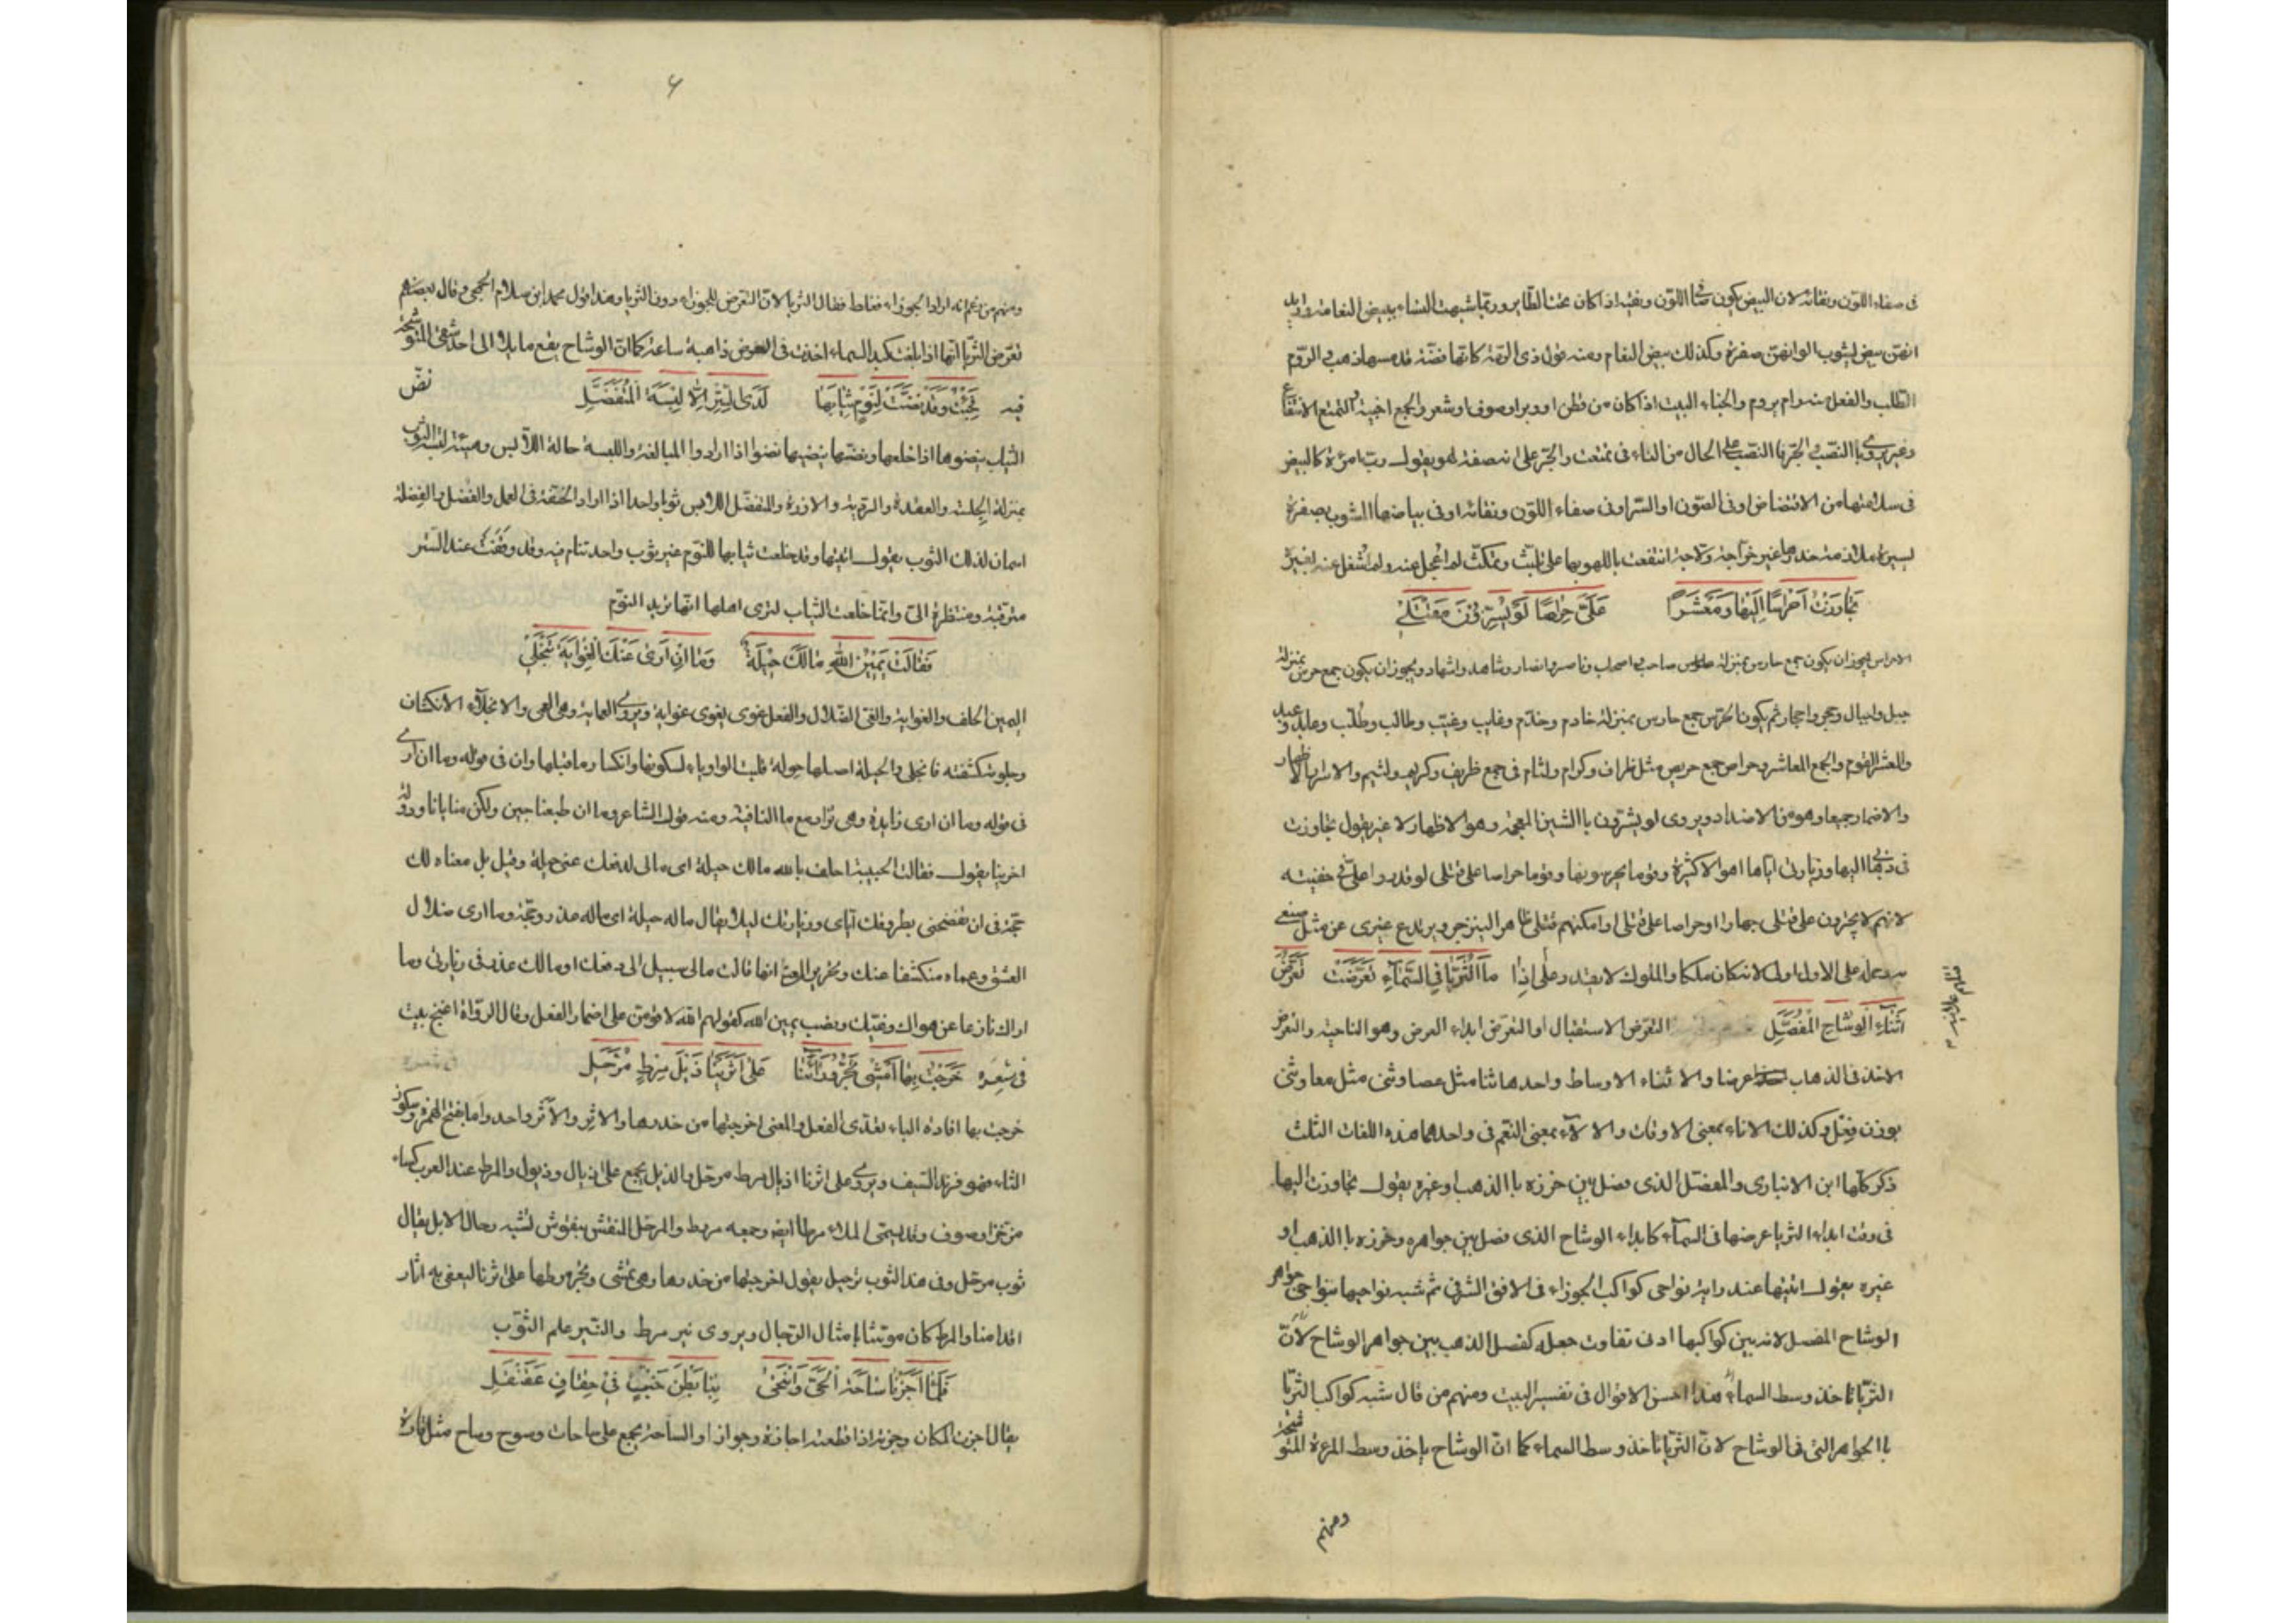 فى صفاء اللون ونقائه لان البيض يكون صافى اللون ونقيه اذا كان تحت الطاير وربما شبهت النساء ببيض النعامة واريد
انهن بيض يشوب الوانهن صفرة وكذلك بيض النعام ومنه قول ذى الرمة كانها فضة قد مسها ذهب الروم
الطلب والفعل منه رام يروم والخباء البيت اذا كان من قطن او وبر او صوف او شعر والجمع اخبية والتمتع الانتفاع
وغير يروى بالنصب والجر فالنصب على الحال من التاء فى تمتعت والجر على انه صفة لهو يقول ورب امرءة كالبيض
فى سلامتها من الافتضاض او فى الصون او الستر او فى صفاء اللون ونقائه او فى بياضها المشوب بصفرة
يسيرة ملازمة خدرها غير خراجة ولاجة انتفعت باللهو بها على تلبث وتمكث لم اعجل عنه ولم اشغل عنه بغيره
تجاوزت احراسا اليها ومعشرا على حراصا لو يسرون مقتلى
الاحراس يجوز ان يكون جمع حارس بمنزلة صاحب واصحاب وناصر وانصار وشاهد واشهاد ويجوز ان يكون جمع حرس بمنزلة
جبل واجبال وحجر واحجار ثم يكون الحرس جمع حارس بمنزلة خادم وخدم وغايب وغيب وطالب وطلب وعابد وعبد
والمعشر القوم والجمع المعاشر وحراص جمع حريص مثل ظراف وكرام ولئام فى جمع ظريف وكريم ولئيم والاسرار الاظهار
والاضمار جميعا وهو من الاضداد ويروى لو يشرون بالشين المعجمة وهو الاظهار لا غير يقول تجاوزت
فى ذهابى اليها وزيارتى اياها اهوالا كثيرة وقوما يحرسونها وقوما حراصا على قتلى لو قدروا على فى خفية
لانهم لا يجترون على قتلى جهارا او حراصا على قتلى لو امكنهم قتلى ظاهرا لينزجر ويرتدع غيرى عن مثل صنعى
وحمله على الاول اولى لانه كان ملكا والملوك لا يقدر على اذا ما الثريا فى السماء تعرضت تعرض
اثناء الوشاح المفصل التعرض الاستقبال او التعرض ابداء العرض وهو الناحية والتعرض
الاخذ فى الذهاب عرضا والاثناء الاوساط واحدها ثنا مثل عصا وثنى مثل معا وثنى
بوزن فعل وكذلك الاناء بمعنى الاوقات والالاء بمعنى النعم فى واحدهما هذه اللغات الثلث
ذكر كلها ابن الانبارى والمفصل الذى فصل بين خرزه بالذهب او غيره يقول تجاوزت اليها
فى وقت ابداء الثريا عرضها فى السماء كابداء الوشاح الذى فصل بين جواهره وخرزه بالذهب او
غيره يقول اتيتها عند راية نواحى كواكب الجوزاء فى الافق الشرقى ثم شبه نواحيها بنواحى جواهر
الوشاح المفصل لانه بين كواكبها ادنى تفاوت جعله كفصل الذهب بين جواهر الوشاح لان
الثريا تاخذ وسط السماء هذا احسن الاقوال فى تفسير البيت ومنهم من قال شبه كواكب الثريا
بالجواهر التى فى الوشاح لان الثريا تاخذ وسط السماء كما ان الوشاح ياخذ وسط المرءة المتوشحة
ومنهم
٦
ومنهم من زعم انه اراد الجوزاء فغلط فقال الثريا لان التعرض للجوزاء دون الثريا وهذا قول محمد ابن سلام الجمحى وقال بعضهم
تعرض الثريا انها اذا بلغت كبد السماء اخذت فى العرض ذاهبة ساعة كما ان الوشاح يقع مايلا الى احد شقى المتوشحة
فيه فجئت وقد نضت لنوم ثيابها لدى الستر الا لبسة المتفضل نض
الثياب ينضوها اذا خلعها ونضيها ينضيها نضوا اذا ارادوا المبالغة واللبسة حالة اللابس وهيئة لبسه الثوب
بمنزلة الجلسة والعقدة والردية والازرة والمتفضل اللابس ثوبا واحدا اذا اراد الخفة فى العمل والفضل والفضلة
اسمان لذلك الثوب يقول اتيتها وقد خلعت ثيابها للنوم غير ثوب واحد تنام فيه وقد وقفت عند الستر
مترقبة ومنتظرة الى وانما خلعت الثياب لترى اهلها انها تريد النوم
فقالت يمين الله مالك حيلة وما ان ارى عنك الغواية تنجلى
اليمين الحلف والغواية والغى الضلال والفعل غوى يغوى غواية ويروى العماية وهى العمى والانجلاء الانكشاف
وجلوته كشفته فانجلى والحيلة اصلها حولة قلبت الواو ياء لسكونها وانكسار ماقبلها وان فى قوله وما ان ارى
فى قوله وما ان ارى زايدة وهى تزاد مع ما النافية ومنه قول الشاعر وما ان طبعنا جبن ولكن منايانا ودولة
اخرينا يقول فقالت الحبيبة احلف بالله مالك حيلة اى مالى لدفعك عنى حيلة وقيل بل معناه لك
حجة فى ان تفضحنى بطروقك اياى وزيارتك ليلا يقال ماله حيلة اى ماله عذر وحجة وما ارى ضلال
العشق وعماه منكشفا عنك وتحرير المعنى انها قالت مالى سبيل الى دفعك او مالك عذر فى زيارتى وما
اراك نازعا عن هواك وغيك ونصب يمين الله كقولهم الله لاقومن على اضمار الفعل وقال الرواة اغنج بيت
فى شعره خرجت بها امشى تجر وراءنا على اثرينا ذيل مرط مرحل
خرجت بها افادة الباء تعدى الفعل والمعنى اخرجتها من خدرها والاثر والاثر واحد واما بفتح الهمزة وسكون
الثاء فهو فرند السيف ويروى على اثرنا اذيال مرط مرحل والذيل يجمع على اذيال وذيول والمرط عند العرب كساء
من خز او صوف وقد يسمى الملاءة مرطا ايضا وجمعه مروط والمرحل المنقش بنقوش تشبه رحال الابل يقال
ثوب مرحل وفى هذا الثوب ترحيل يقول اخرجتها من خدرها وهى تمشى وتجر مرطها على اثرنا ليعفى به اثار
اقدامنا والمرط كان موشيا بامثال الرحال ويروى نير مرط والنير علم الثوب
فلما اجزنا ساحة الحى وانتحى بنا بطن خبت فى حقاف عقنقل
يقال اجزت المكان وجزته اذا قطعته اجازة وجوازا والساحة يجمع على ساحات وسوح وساح مثل قارة